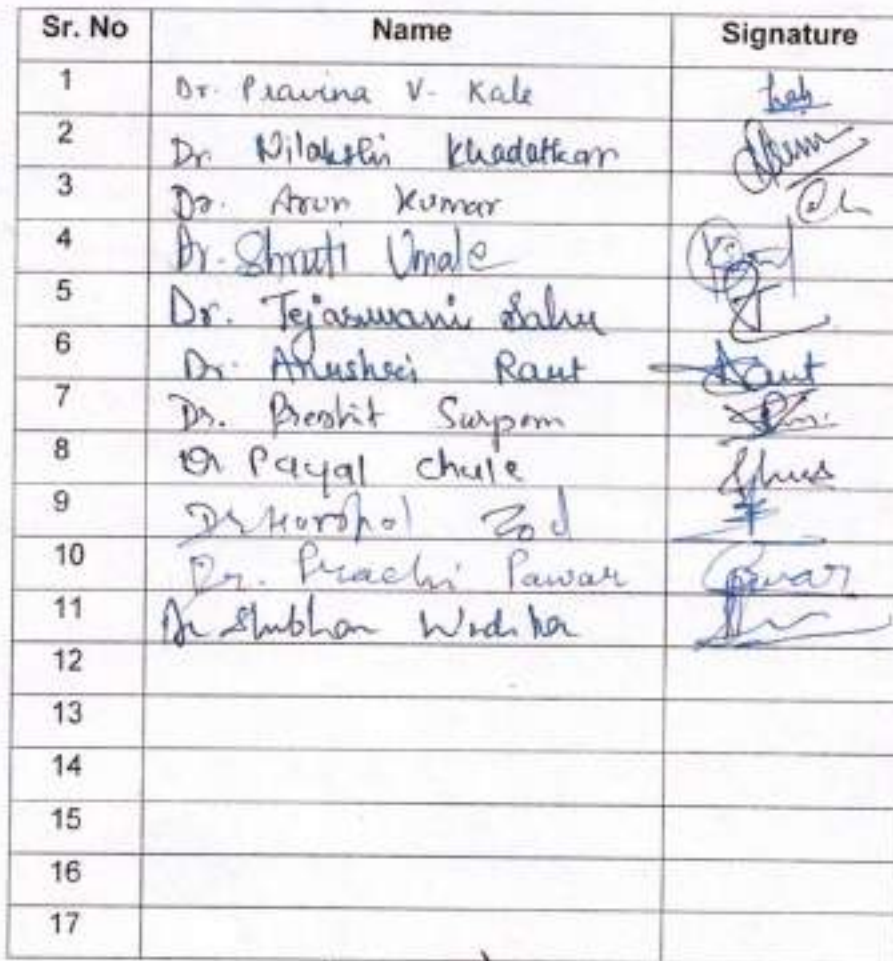 Sr. No Name Signature
1 Dr. Pravina V. Kale
2 Dr. Nilakshi Khadatkar
3 Dr. Arun Kumar
4 Dr. Shruti Umale
5 Dr. Tejaswani Sahu
6 Dr. Anushri Raut Raut
7 Dr. Preshit Surpam
8 Dr Payal Chule
9 Dr Harshal Zod
10 Dr. Prachi Pawar Pawar
11 Dr Shubham
12
13
14
15
16
17